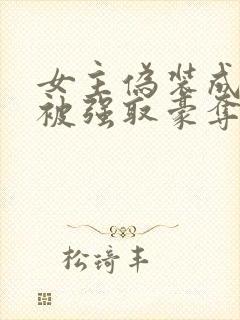 女主伪装成
被强取豪夺
松琦丰